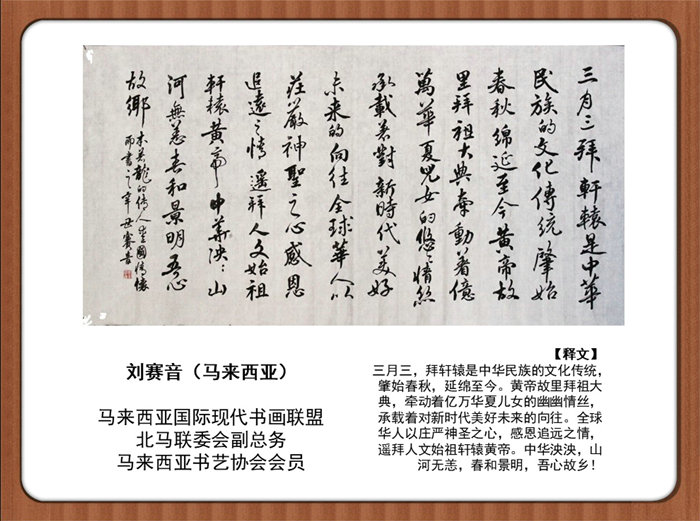 三月三拜軒轅是中華
民族的文化傳統肇始
春秋綿延至今黃帝故
里拜祖大典牽動着億
萬華夏兒女的悠々情絲
承載着對新時代美好
未来的向往全球華人以
莊嚴神聖之心感恩
追遠之情遥拜人文始祖
軒轅黃帝中華泱々山
河無恙春和景明吾心
故鄉
龍的傳人愛國情懷
而書之辛丑賽音
刘赛音（马来西亚）
马来西亚国际现代书画联盟
北马联委会副总务
马来西亚书艺协会会员
【释文】
三月三，拜轩辕是中华民族的文化传统，
肇始春秋，延绵至今。黄帝故里拜祖大
典，牵动着亿万华夏儿女的幽幽情丝，
承载着对新时代美好未来的向往。全球
华人以庄严神圣之心，感恩追远之情，
遥拜人文始祖轩辕黄帝。中华泱泱，山
河无恙，春和景明，吾心故乡！